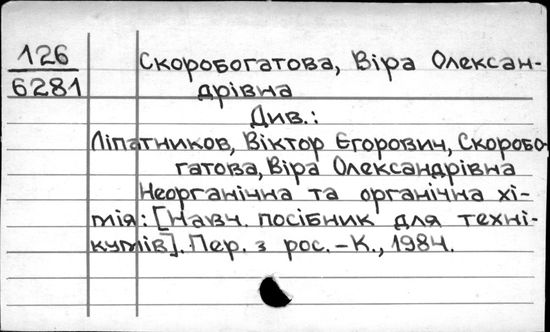 126
6281
Скоробогатова, Віра Олексан-
дрівна
Див.:
Ліпатников, Віктор Єгорович, Скоробо-
гатова, Віра Олександрівна
Неорганічна та органічна хі-
мія: [Навч. посібник для техні-
кумів]. Пер. з рос. - К., 1984.